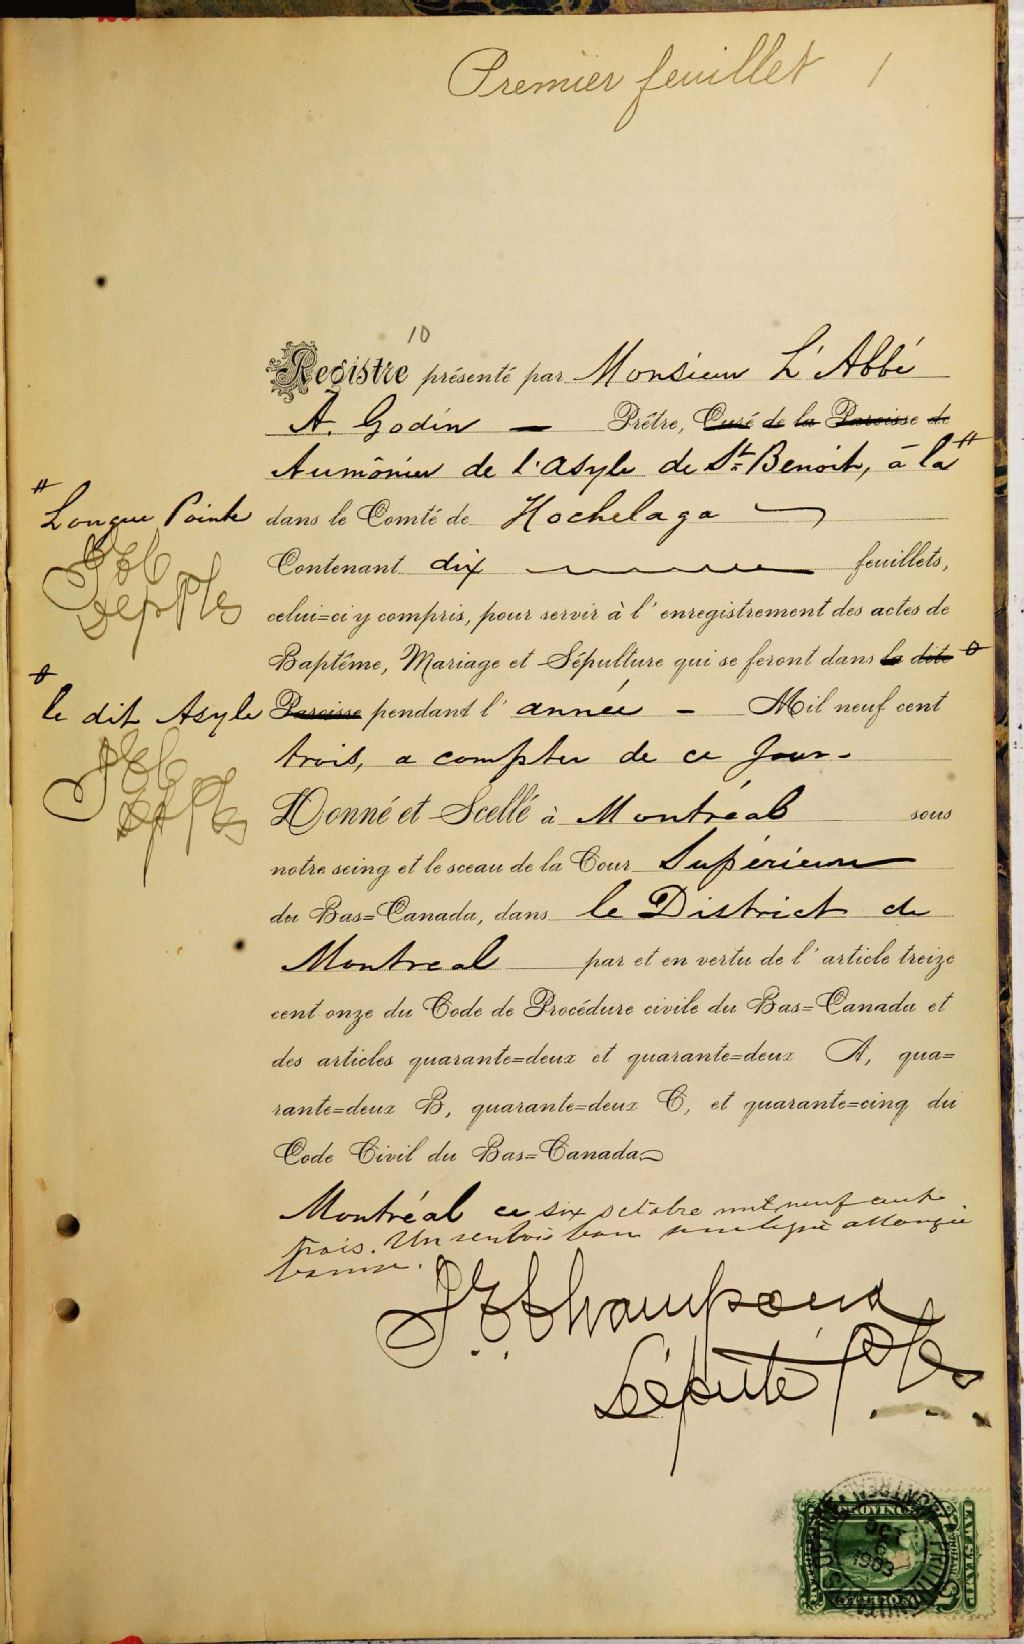 Premier feuillet 1
10
Registre présenté par Monsieur L'Abbé
A. Godin — Prêtre, Curé de la Paroisse de
Aumônier de l'Asyle de St Benoit, à la #
#
Longue Pointe
dans le Comté de Hochelaga
Contenant dix feuillets,
celui=ci y compris, pour servir à l'enregistrement des actes de
Baptême, Mariage et Sépulture qui se feront dans la dite
le dit Asyle
Paroisse pendant l'année — Mil neuf cent
trois, a compter de ce jour.
Donné et Scellé à Montréal sous
notre seing et le sceau de la Cour Supérieure
du Bas=Canada, dans le District de
Montreal par et en vertu de l'article treize
cent onze du Code de Procédure civile du Bas=Canada et
des articles quarante=deux et quarante=deux A, qua=
rante=deux B, quarante=deux C, et quarante=cinq du
Code Civil du Bas=Canada
Montréal ce six octobre mil neuf cent
trois. Un
Député
MONTREAL
OCT
6
1903
LAW STAMP